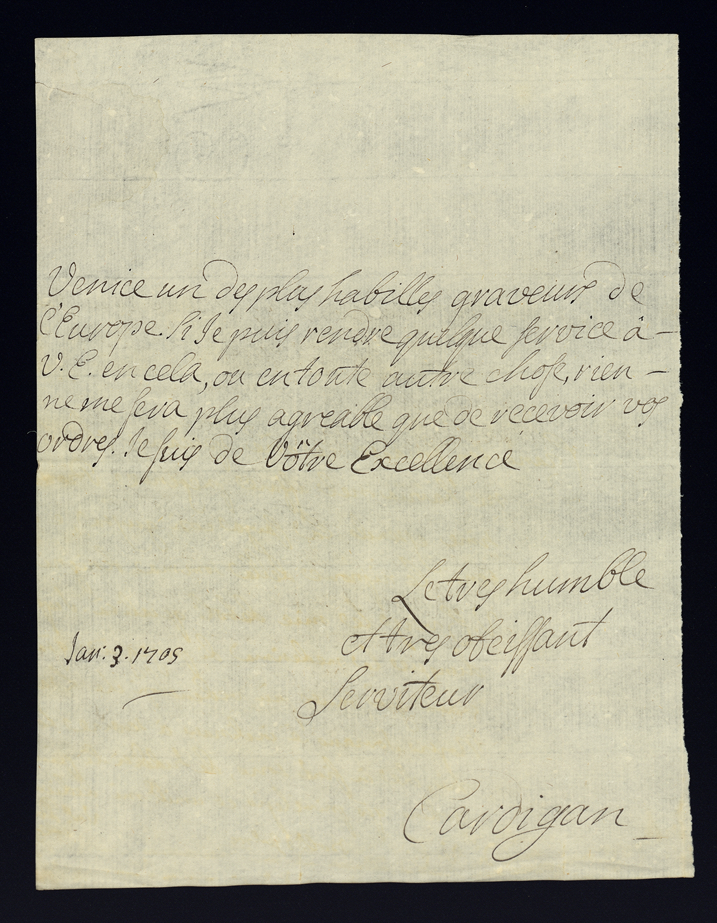 Venice un des plus habilles graveurs de
l'Europe. Si Je puis rendre quelque service à –
V. E. en cela, ou en toute autre chose, rien –
ne me sera plus agreable que de recevoir vos
ordres. Je suis de Vôtre Excellence
Le tres humble
et tres obeissant
Serviteur
Jan: 3. 1705
Cardigan